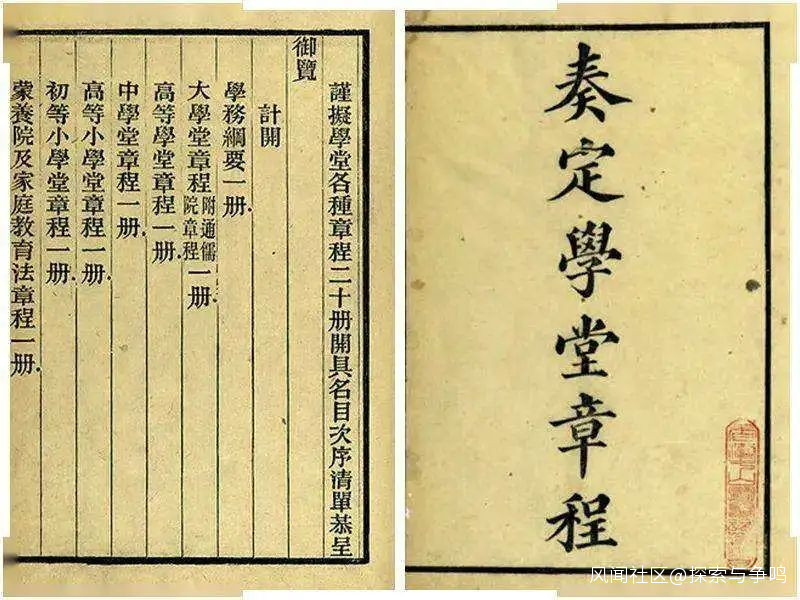 奏定學堂章程
謹擬學堂各種章程二十册開具名目次序清單恭呈
御覽
計開
學務綱要一册
大學堂章程附通儒院章程一册
高等學堂章程一册
中學堂章程一册
高等小學堂章程一册
初等小學堂章程一册
蒙養院及家庭教育法章程一册
风闻社区@探索与争鸣